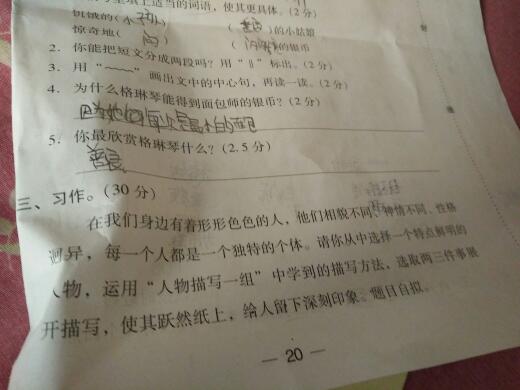 填上适当的词语，使其更具体。（2分）
饥饿的（小孩） （善良）的小姑娘
惊奇地（问） （闪 的银币
2. 你能把短文分成两段吗？用“‖”标出。（2分）
3. 用“﹏﹏” 画出文中的中心句，再读一读。（2分）
4. 为什么格琳琴能得到面包师的银币？（2分）
因为她每次 最小的面包
5. 你最欣赏格琳琴什么？（2.5分）
善良
三、习作。（30分）
在我们身边有着形形色色的人，他们相貌不同、神情不同、性格
迥异，每一个人都是一个独特的个体。请你从中选择一个特点鲜明的
人物，运用“人物描写一组”中学到的描写方法，选取两三件事展
开描写，使其跃然纸上，给人留下深刻印象。题目自拟。
— 20 —